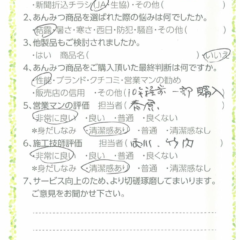 ・新聞折込チラシ・JA・生協)・その他(
2、あんみつ商品を選ばれた際の悩みは何でしたか。
防露・暑さ・寒さ・西日・防犯・騒音・その他(
3、他製品もご検討されましたか。
・はい 商品名( )・いいえ
4、あんみつ商品をご購入頂いた最終判断は何ですか。
・性能・ブランド・クチコミ・営業マンの勧め
・販売店の信用 ・その他(
5、営業マンの評価 担当者(
・非常に良い ・良い ・普通 ・良くない
*身だしなみ ・清潔感あり ・普通 ・清潔感なし
6、施工技師評価 担当者(
・非常に良い ・良い ・普通 ・良くない
*身だしなみ ・清潔感あり ・普通 ・清潔感なし
7、サービス向上のため、より切磋琢磨してまいります。
ご意見をお聞かせ下さい。